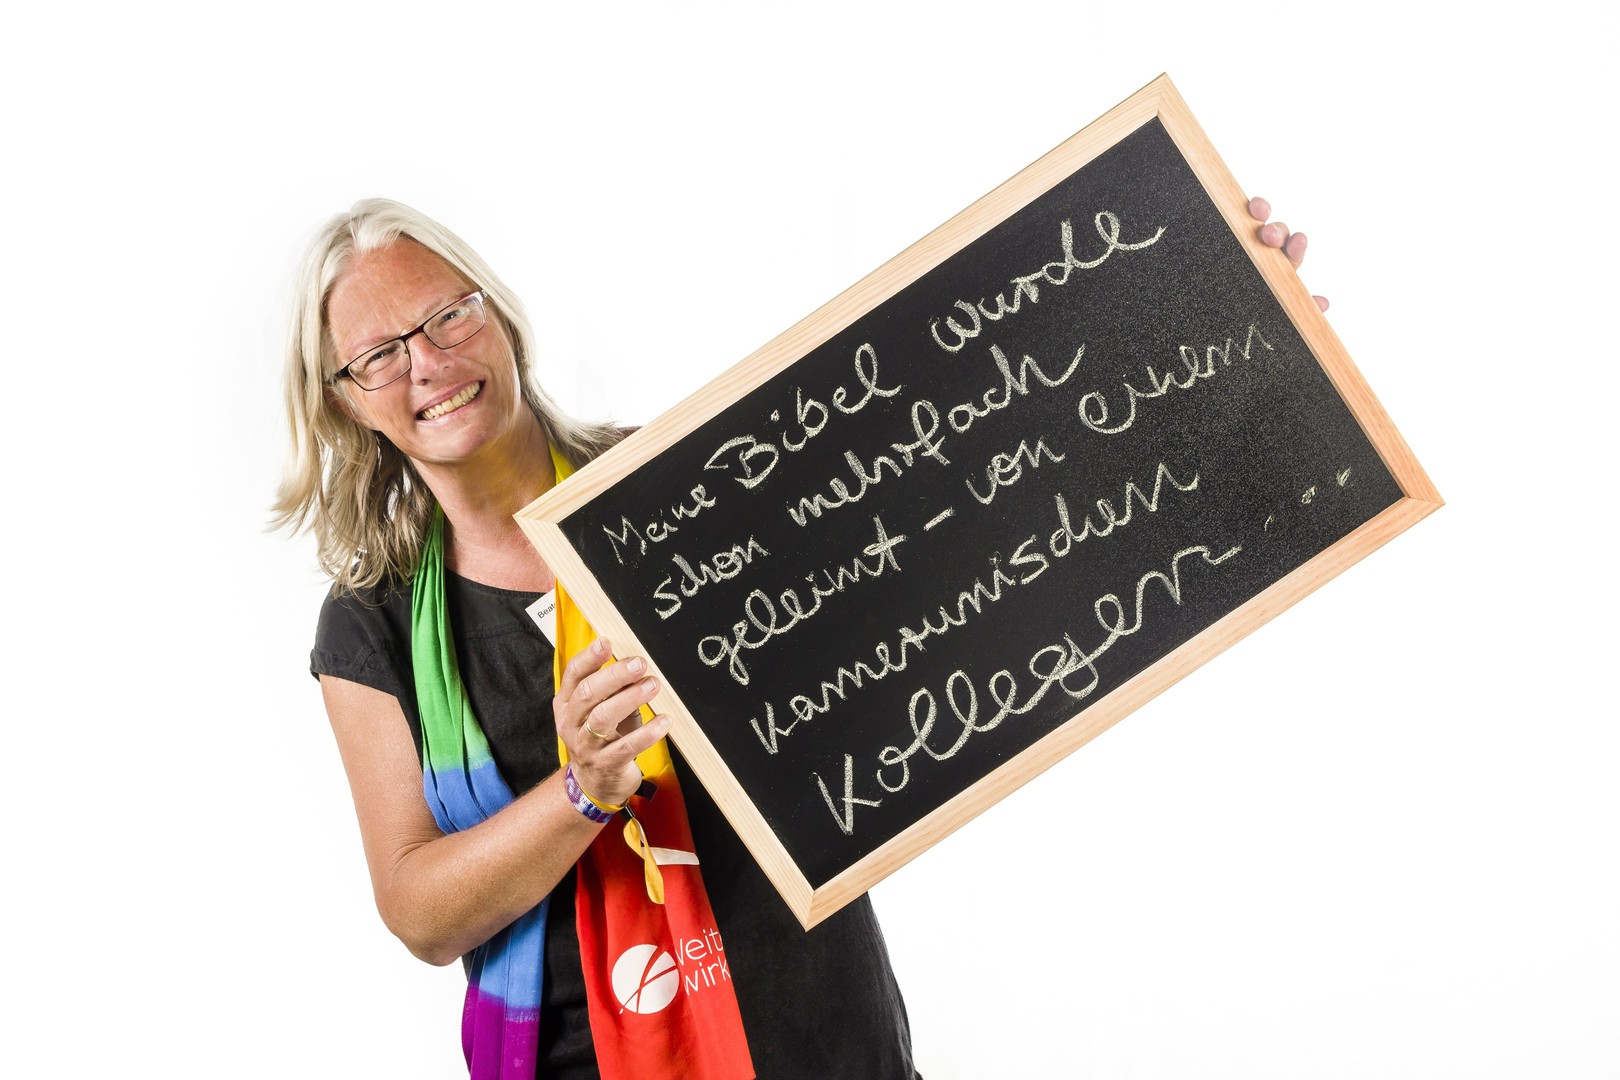 Meine Bibel wurde
schon mehrfach
geleimt – von einem
kamerunischen
Kollegen...
Beat
Weit
wirk